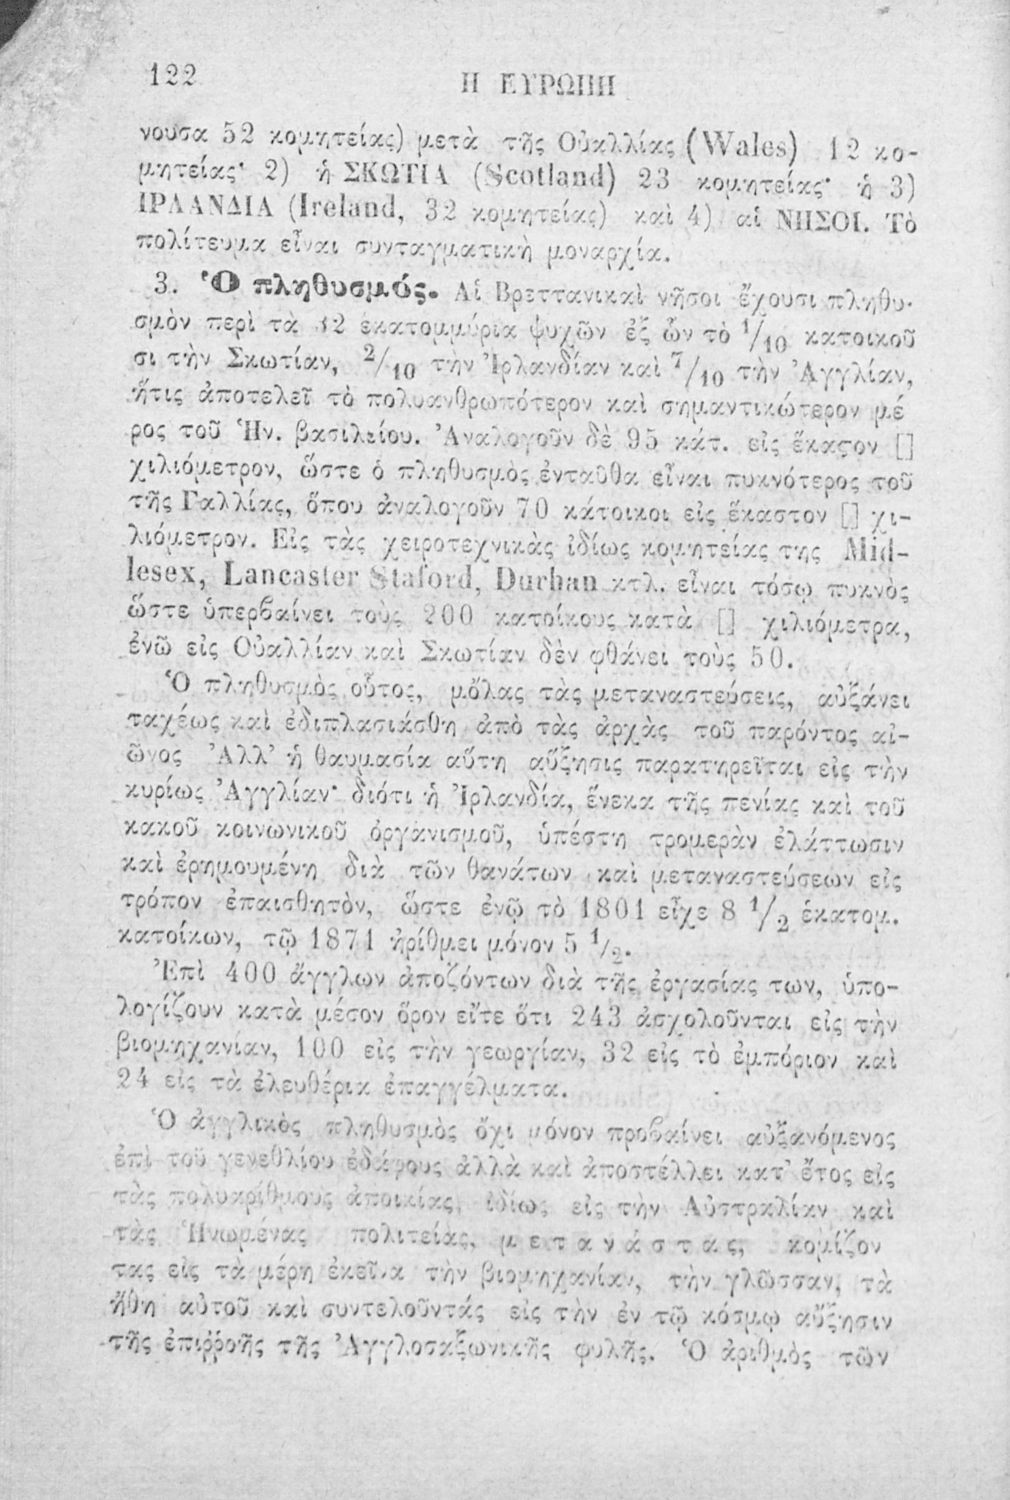 122
Η ΕΥΡΩΠΗ
νουσα 52 κομητείας) μετὰ τῆς Οὐαλλίας (Wales) 12 κο-
μητείας· 2) ἡ ΣΚΩΤΙΑ (Scotland) 23 κομητείας· ἡ 3)
ΙΡΛΑΝΔΙΑ (Ireland, 32 κομητείας) καὶ 4) αἱ ΝΗΣΟΙ. Τὸ
πολίτευμα εἶναι συνταγματικὴ μοναρχία.
3. Ὁ πληθυσμός. Αἱ Βρεττανικαὶ νῆσοι ἔχουσι πληθυ-
σμὸν περὶ τὰ 32 ἑκατομμύρια ψυχῶν ἐξ ὧν τὸ 1/10 κατοικοῦ
σι τὴν Σκωτίαν, 2/10 τὴν Ἰρλανδίαν καὶ 7/10 τὴν Ἀγγλίαν,
ἥτις ἀποτελεῖ τὸ πολυανθρωπότερον καὶ σημαντικώτερον μέ
ρος τοῦ Ἡν. βασιλείου. Ἀναλογοῦν δὲ 95 κάτ. εἰς ἕκαϛον []
χιλιόμετρον, ὥστε ὁ πληθυσμὸς ἐνταῦθα εἶναι πυκνότερος τοῦ
τῆς Γαλλίας, ὅπου ἀναλογοῦν 70 κάτοικοι εἰς ἕκαστον [] χι-
λιόμετρον. Εἰς τὰς χειροτεχνικὰς ἰδίως κομητείας της Mid-
lesex, Lancaster Staford, Durhan κτλ. εἶναι τόσῳ πυκνὸς
ὥστε ὑπερβαίνει τοὺς 200 κατοίκους κατὰ [] χιλιόμετρα,
ἐνῶ εἰς Οὐαλλίαν καὶ Σκωτίαν δὲν φθάνει τοὺς 50.
Ὁ πληθυσμὸς οὗτος, μὅλας τὰς μεταναστεύσεις, αὐξάνει
ταχέως καὶ ἐδιπλασιάσθη ἀπὸ τὰς ἀρχὰς τοῦ παρόντος αἰ-
ῶνος Ἀλλ' ἡ θαυμασία αὕτη αὔξησις παρατηρεῖται εἰς τὴν
κυρίως Ἀγγλίαν· διότι ἡ Ἰρλανδία, ἕνεκα τῆς πενίας καὶ τοῦ
κακοῦ κοινωνικοῦ ὀργανισμοῦ, ὑπέστη τρομερὰν ἐλάττωσιν
καὶ ἐρημουμένη διὰ τῶν θανάτων καὶ μεταναστεύσεων εἰς
τρόπον ἐπαισθητὸν, ὥστε ἐνῷ τὸ 1801 εἶχε 8 1/2 ἑκατομ.
κατοίκων, τῷ 1871 ἠρίθμει μόνον 5 1/2.
Ἐπὶ 400 ἄγγλων ἀποζόντων διὰ τῆς ἐργασίας των, ὑπο-
λογίζουν κατὰ μέσον ὅρον εἴτε ὅτι 243 ἀσχολοῦνται εἰς τὴν
βιομηχανιαν, 100 εἰς τὴν γεωργίαν, 32 εἰς τὸ ἐμπόριον καὶ
24 εἰς τὰ ἐλευθέρια ἐπαγγέλματα.
Ὁ ἀγγλικὸς πληθυσμὸς ὄχι μόνον προβαίνει αὐξανόμενος
ἐπὶ τοῦ γενεθλίου ἐδάφους ἀλλὰ καὶ ἀποστέλλει κατ' ἔτος εἰς
τὰς πολυαρίθμους ἀποικίας, ἰδίως εἰς τὴν Αὐστραλίαν καὶ
τὰς Ἡνωμένας πολιτείας, μετανάστας, κομίζον
τας εἰς τὰ μέρη ἐκεῖνα τὴν βιομηχανίαν, τὴν γλῶσσαν, τὰ
ἤθη αὐτοῦ καὶ συντελοῦντάς εἰς τὴν ἐν τῷ κόσμῳ αὔξησιν
τῆς ἐπιῤῥοῆς τῆς Ἀγγλοσαξωνικῆς φυλῆς. Ὁ ἀριθμὸς τῶν